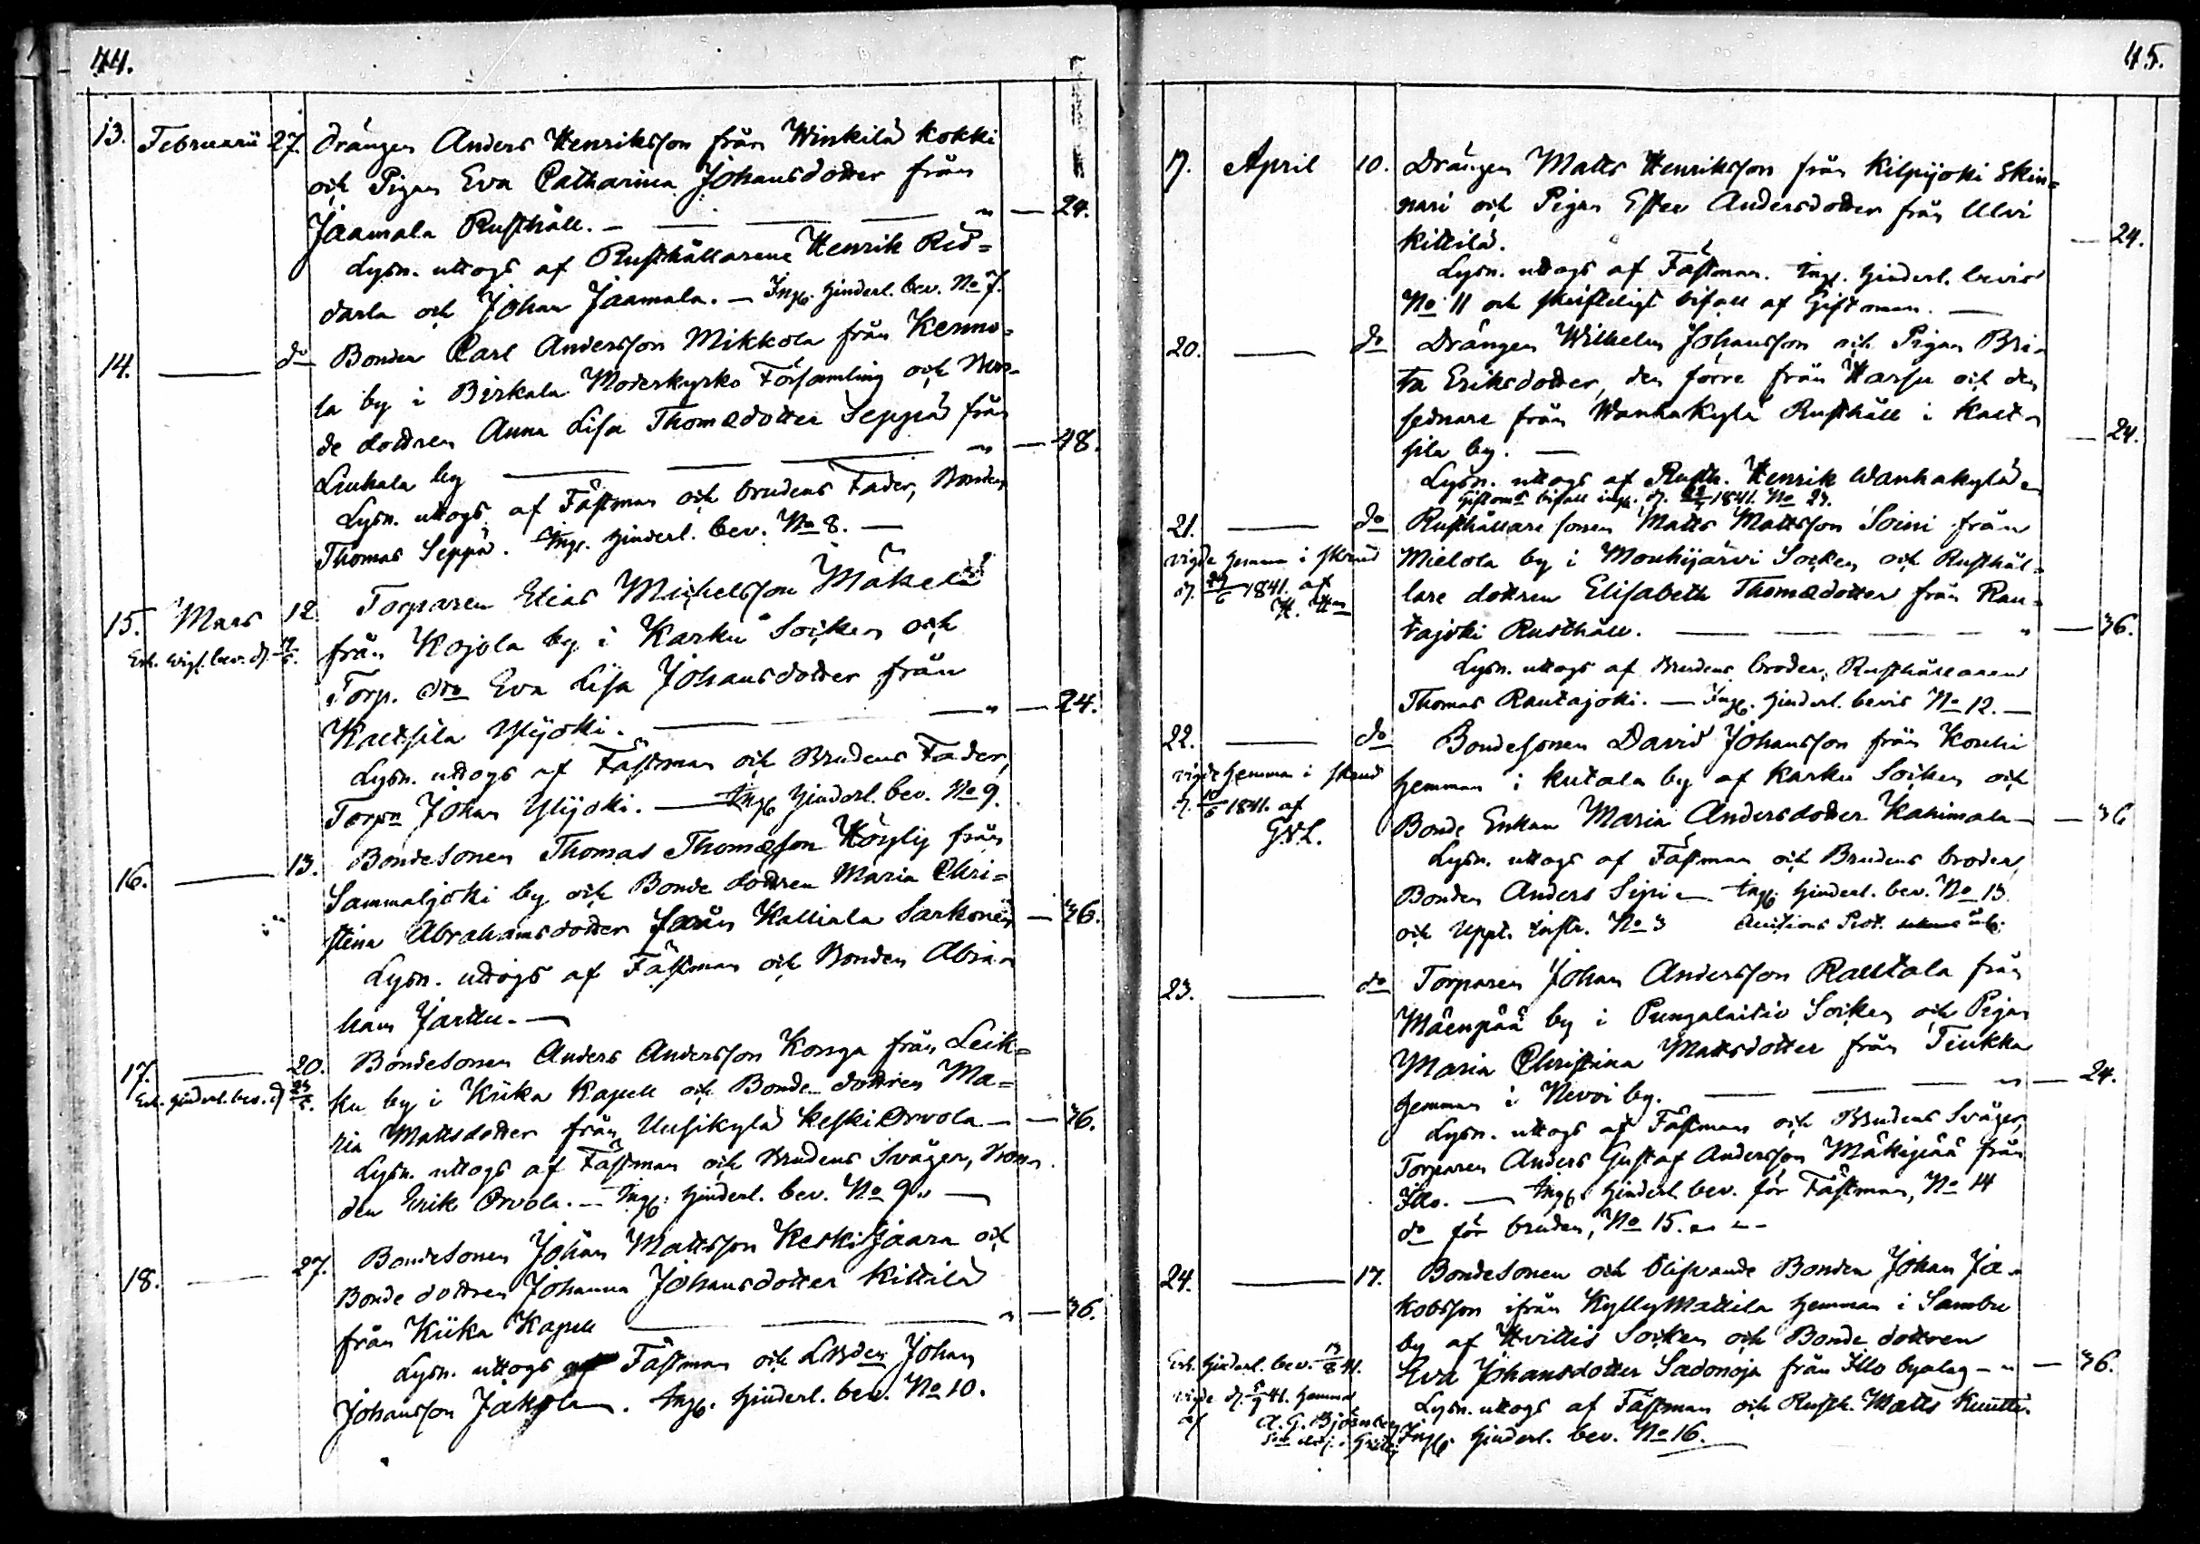 44.
13. Februarii 27. Drängen Anders Henriksson från Winkilä Kokki
och Pigan Eva Catharina Johansdotter från
Jaamala Rusthåll. — 24.
Lysn. uttogs af Rusthållarene Henrik Rid=
darla och Johan Jaamala. — Ingg. hinderl. bev. No 7.
14. — do Bonden Carl Andersson Mikkola från Kenno=
la by i Birkala Moderkyrko Församling och Bon=
de dottren Anna Lisa Thomædotter Seppä från
Liuhala by — 48.
Lysn. uttogs af Fästman och brudens Fader, Bonden
Thomas Seppä. Ingg. hinderl. bev. No 8. —
15. Mars 12. Torparen Elias Michelsson Mäkelä
från Kojola by i Karku Socken och
Torp. dra Eva Lisa Johansdotter från
Kaltsila Ylijoki. — 24.
Lysn. uttogs af Fästman och Brudens Fader,
Torpn Johan Ylijoki. — Ingg. hinderl. bev. No 9.
16. — 13. Bondesonen Thomas Thomæson Höysly från
Sammaljoki by och Bonde dottren Maria Chri=
stina Abrahamsdotter från Kalliala Sarkonen — 36.
Lysn. uttogs af Fästman och Bonden Abra=
ham Jarttu. —
17. — 20. Bondesonen Anders Andersson Konga från Leik=
ku by i Kiika Kapell och Bonde dottren Ma=
ria Mattsdotter från Uusikylä Keski Orvola — 36.
Erh. hinderl. bev. d.
Lysn. uttogs af Fästman och Brudens Svåger, Bon=
den Erik Orvola. — Ingg. hinderl. bev. No 9. —
18. — 27. Bondesonen Johan Mattsson Keskijaara och
Bonde dottren Johanna Johansdotter Kittilä
från Kiika Kapell — 36.
Lysn. uttogs af Fästman och Johan
Johansson Jakola. Ingg. hinderl. bev. No 10.
45.
19. April 10. Drängen Matts Henriksson från Kilpijoki Skin=
nari och Pigan Ester Andersdotter från Ulvi
Kittilä. — 24.
Lysn. uttogs af Fästman. Ingg. hinderl. bevis
No 11 och skriftligt bifall af Giftoman. —
20. — do Drängen Wilhelm Johansson och Pigan Bri=
ta Eriksdotter, den förre från Harju och den
sednare från Wanhakylä Rusthåll i Kalt=
sila by. — 24.
Lysn. uttogs af Rusth. Henrik Wanhakylä
Giftoms bifall ingg. d. 1841. No 23.
21. — do Rusthållare sonen Matts Mattsson Soini från
vigde hemma i skrud
d. 1841. af
Mielola by i Mouhijärvi Socken och Rusthål=
lare dottren Elisabeth Thomædotter från Rau=
tajoki Rusthåll. — 36.
Lysn. uttogs af Brudens broder, Rusthållaren
Thomas Rautajoki. — Ingg. hinderl. bevis No 12. —
22. — do Bondesonen David Johansson från Kouhi
vigde hemma i skrud
d. 1841. af
hemman i Kutala by af Karku Socken och
Bonde Enkan Maria Andersdotter Kahimala — 36
Lysn. uttogs af Fästman och Brudens broder,
Bonden Anders Sipi — Ingg. hinderl. bev. No 13.
och Uppt. Instr. No 3 Auctions Prot.
23. — do Torparen Johan Andersson Rautala från
Mäenpää by i Pungalaitio Socken och Pigan
Maria Christina Mattsdotter från Tiukka
hemman i Nevoi by. — 24.
Lysn. uttogs af Fästman och Brudens Svåger,
Torparen Anders Gustaf Andersson Mäkipää från
Illo. — Ingg. hinderl. bev. för Fästman, No 14
do för bruden, No 15.
24. — 17. Bondesonen och blifvande Bonden Johan Ja=
kobsson ifrån Kylly Mattila hemman i Sambu
by af Hvittis Socken och Bonde dottren
Eva Johansdotter Sadonoja från Illo byalag — 36.
Erh. hinderl. bev. 41.
vigde d. 41. hemma
af A. G. Björnberg
Lysn. uttogs af Fästman och Rusth. Matts Knuuti.
Ingg. hinderl. bev. No 16.